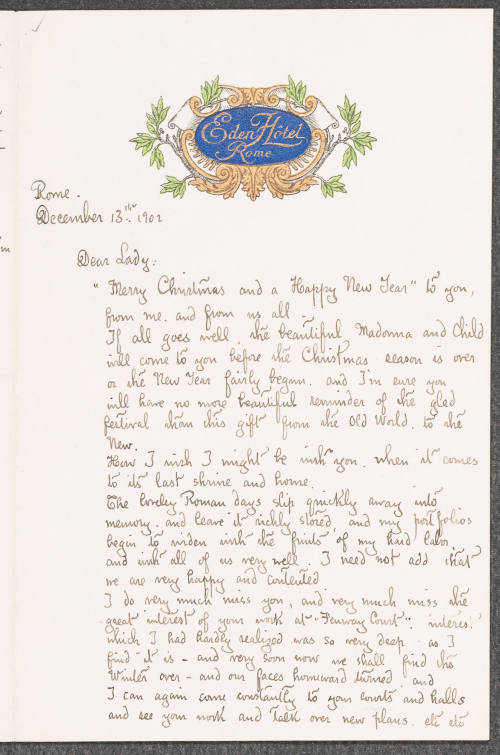 Eden Hotel
Rome
Rome.
December 13th. 1902
Dear Lady:
"Merry Christmas and a Happy New Year" to you,
from me. and from us all.
If all goes well, the beautiful Madonna and Child
will come to you before the Christmas season is over
or the New Year fairly begun. and I'm sure you
will have no more beautiful reminder of the glad
festival than this gift from the Old World. to the
New.
How I wish I might be with you. when it comes
to its last shrine and home.
The lovely Roman days slip quickly away into
memory. and leave it richly stored. and my portfolios
begin to widen with the fruits of my hard labor
and with all of us very well. I need not add that
we are very happy and contented.
I do very much miss you, and very much miss the
great interest of your work at "Fenway Court". interest
which I had hardly realized was so very deep. as I
find it is - and very soon now we shall find the
Winter over - and our faces homeward turned and
I can again come constantly to your courts and halls
and see your work and talk over new plans. etc etc